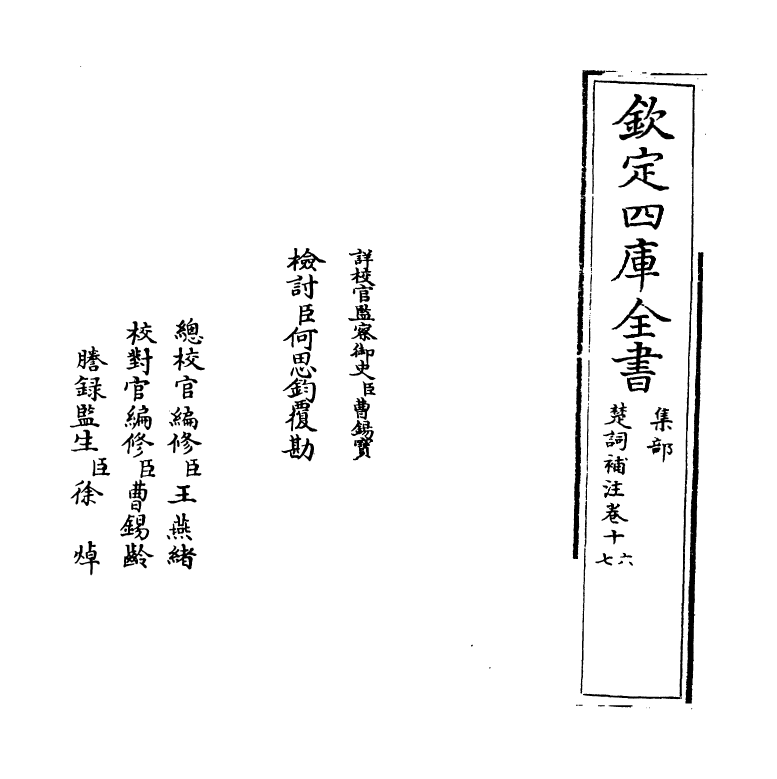 欽定四庫全書
集部
楚詞補注卷十六
七
詳校官監察御史臣曹錫寶
檢討臣何思鈞覆勘
總校官編修臣王燕緒
校對官編修臣曹錫齡
謄録監生臣徐焯